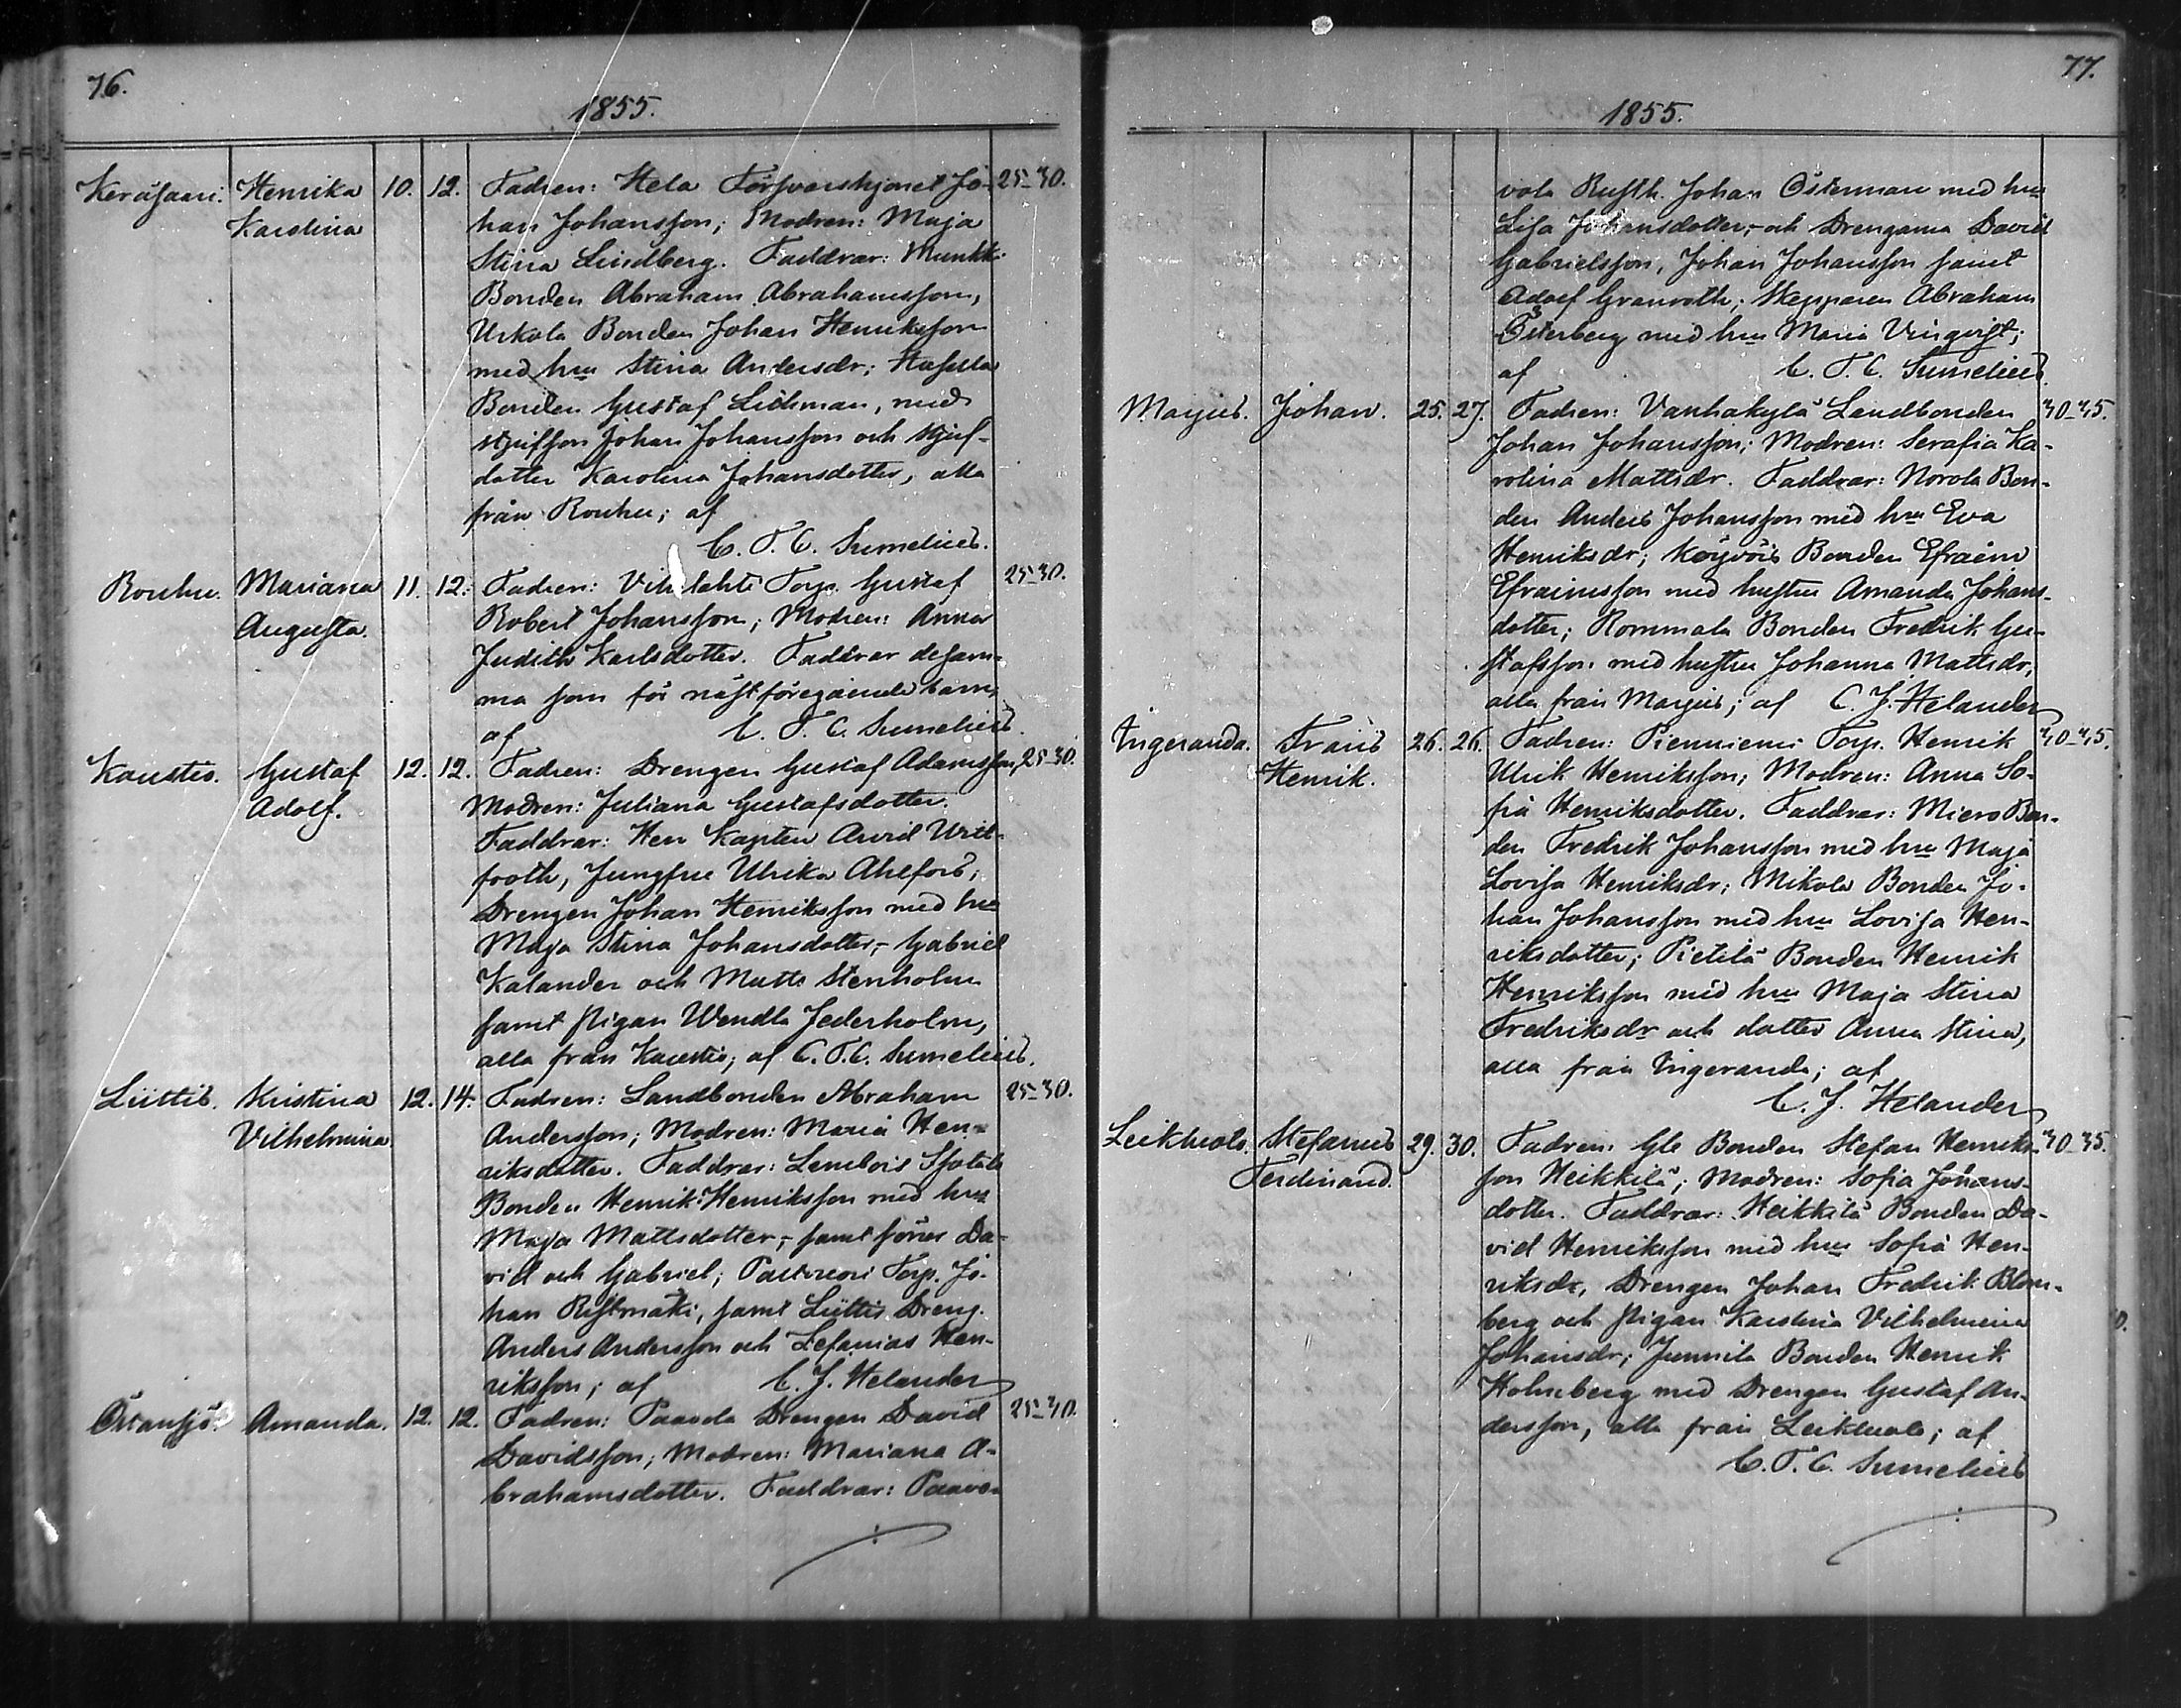 76.
1855.
Keräsaari. Henrika 10. 12. Fadren: Hela Försvarshjonet Jo- 25-30.
Karolina han Johansson; Modren: Maja
Stina Lindberg. Faddrar: Munkki
Bonden Abraham Abrahamsson,
Urkola Bonden Johan Henriksson
med hru Stina Andersdr;
Bonden Gustaf Lidman, med
styfson Johan Johansson och styf-
dotter Karolina Johansdotter, alla
från Rouhu; af
C. T. C. Sumelius.
Rouhu. Mariana 11. 12. Fadren: Torp. Gustaf 25-30.
Augusta. Robert Johansson; Modren: Anna
Judith Karlsdotter. Faddrar desam-
ma som för nästföregående barn;
af C. T. C. Sumelius.
Kaustis. Gustaf 12. 12. Fadren: Drengen Gustaf Adamsson, 25-30.
Adolf. Modren: Juliana Gustafsdotter.
Faddrar: Herr Kapten Arvid Wret-
footh, Jungfru Ulrika Ahlfors;
Drengen Johan Henriksson med hru
Maja Stina Johansdotter,- Gabriel
Kalander och Matts Stenholm
samt pigan Wendla Jederholm,
alla från Kaustis; af C. T. C. Sumelius.
Liittis. Kristina 12. 14. Fadren: Landbonden Abraham 25-30.
Vilhelmina Andersson; Modren: Maria Hen-
riksdotter. Faddrar: Lembois Isotalo
Bonden Henrik Henriksson med hru
Maja Mattsdotter,- samt söner Da-
vid och Gabriel; Torp. Jo-
han Ristimäki, samt Liittis Dreng.
Anders Andersson och Zefanias Hen-
riksson; af C. J. Helander
Östansjö. Amanda. 12. 12. Fadren: Paavola Drengen David 25-30.
Davidsson; Modren: Mariana A-
brahamsdotter. Faddrar: Paavo-
77.
1855.
vola Rusth. Johan Österman med hru
Lisa Johansdotter,- och Drengarna David
Gabrielsson, Johan Johansson samt
Adolf Granroth; Skepparen Abraham
Österberg med hru Maria Vinqvist;
af C. T. C. Sumelius.
Marjus. Johan. 25. 27. Fadren: Vanhakylä Landbonden 30-35.
Johan Johansson; Modren: Serafia Ka-
rolina Mattsdr. Faddrar: Norola Bon-
den Anders Johansson med hru Eva
Henriksdr; Köyvöis Bonden Efraim
Efraimsson med hustru Amanda Johans-
dotter; Rommala Bonden Fredrik Gu-
stafsson med hustru Johanna Mattsdr,
alla från Marjus; af C. J. Helander
Ingeranda. Frans 26. 26. Fadren: Pienniemi Torp. Henrik 30-35.
Henrik. Ulrik Henriksson; Modren: Anna So-
fia Henriksdotter. Faddrar: Miero Bon-
den Fredrik Johansson med hru Maja
Lovisa Henriksdr; Mikola Bonden Jo-
han Johansson med hru Lovisa Hen-
riksdotter; Pietilä Bonden Henrik
Henriksson med hru Maja Stina
Fredriksdr och dotter Anna Stina,
alla från Ingeranda; af
C. J. Helander
Leikluoto. Stefanus 29. 30. Fadren: Gle Bonden Stefan Henriks- 30-35.
Ferdinand. son Heikkilä; Modren: Sofia Johans-
dotter. Faddrar: Heikkilä Bonden Da-
vid Henriksson med hru Sofia Hen-
riksdr, Drengen Johan Fredrik Blom-
berg och pigan Karolina Vilhelmina
Johansdr; Junnila Bonden Henrik
Holmberg med Drengen Gustaf An-
dersson, alla från Leikluoto; af
C. T. C. Sumelius